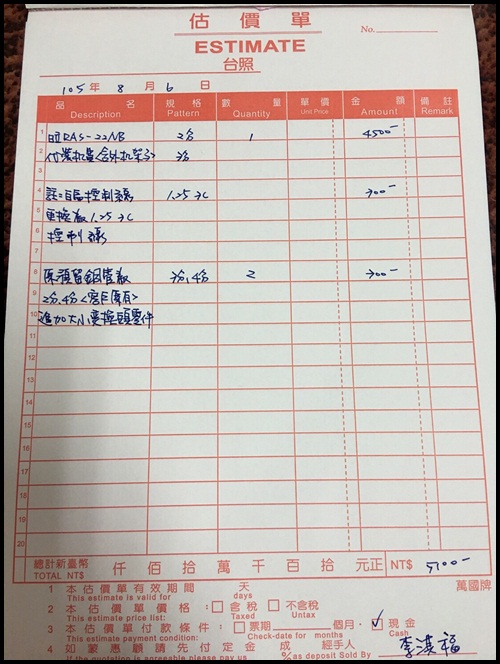 估價單
ESTIMATE
No.
台照
105 年 8 月 6 日
品名 規格 數量 單價 金額 備註
Description Pattern Quantity Unit Price Amount Remark
1 RAS-22NB 2分 1 4500-
2
3
4 註=自區控制線 1.25 2C 300-
5 更換為1.25 2C
6 控制線
7
8 原預留銅管為 3分,4分 2 300-
9 2分,4分<客戶原有>
10 追加大小變換頭零件
11
12
13
14
15
16
17
18
19
20
總計新臺幣 仟佰拾萬千百拾元正 NT$ 5100-
TOTAL NT$
1 本估價單有效期間 天 萬國牌
This estimate is valid for days
2 本估價單價格:□含稅 □不含稅
This estimate price list: Taxed Untax
3 本估價單付款條件:□票期 個月. ☑現金
This estimate payment condition: Check-date for months Cash
4 如蒙惠顧請先付定金 成 經手人
If the quotation is agreeable please pay us % as deposit Sold By